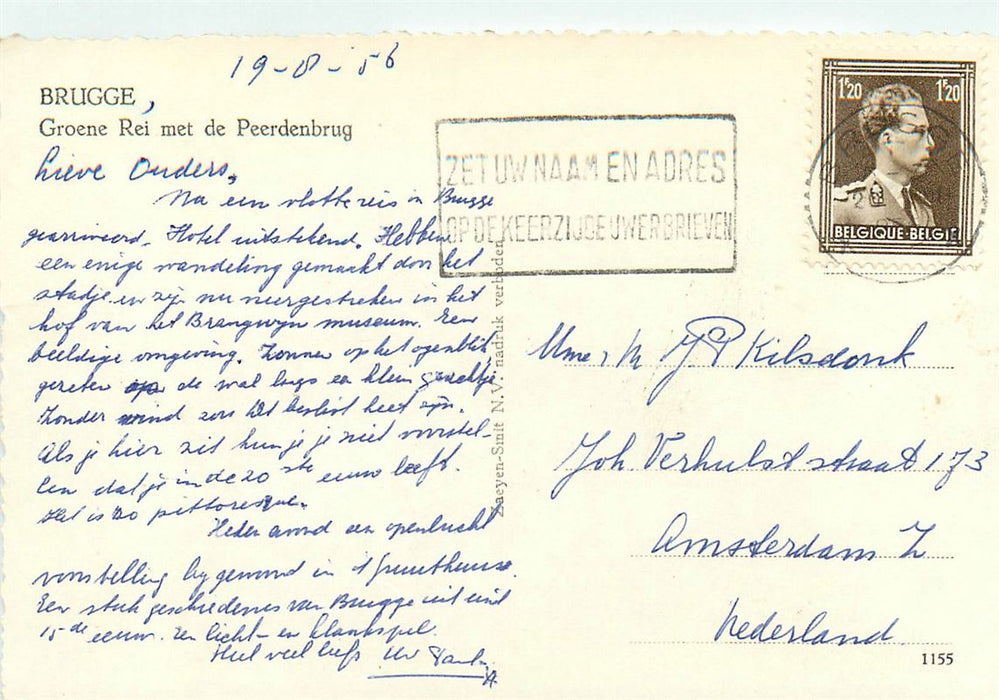 19-8-56
BRUGGE,
Groene Rei met de Peerdenbrug
Lieve Ouders,
Na een vlotte reis in Brugge
gearriveerd. Hotel uitstekend. Hebben
een enige wandeling gemaakt door het
stadje en zijn nu neergestreken in het
hof van het Brangwyn museum. Een
beeldige omgeving. Zonnen op het ogenblik,
gezeten op de wal langs een klein grachtje.
Zonder wind zou het beslist heet zijn.
Als je hier zit kun je je niet voorstel-
len dat je in de 20ste eeuw leeft.
Het is zo pittoresque.
Heden avond een openlucht
voorstelling bijgewoond in 't Gruuthuuse.
Een stuk geschiedenis van Brugge uit eind
15de eeuw. Een licht- en klankspel.
Heel veel liefs Uw
ZET UW NAAM EN ADRES
OP DE KEERZIJDE UWER BRIEVEN
1F20 1F20
BELGIQUE-BELGIE
Zaeyen-Smit N.V. nadruk verboden
J P Kilsdonk
Joh. Verhulststraat 173
Amsterdam Z
Nederland
1155